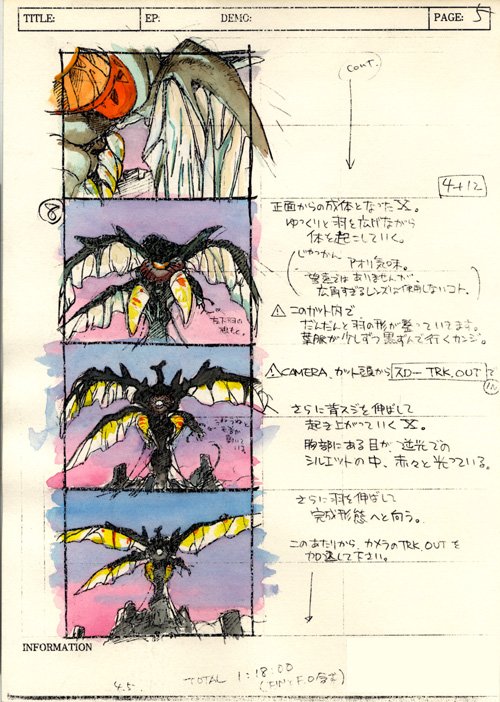 TITLE:
EP:
DEMO:
PAGE: 5
(cont.)
4+12
⑧
正面からの成体となったX。
ゆっくりと羽を広げながら
体を起こしていく。
アオリ気味。
ありませんが、
広角すぎるレンズは使用しないコト。
このカット内で
だんだんと羽の形が整っていきます。
葉脈が少しずつ黒ずんで行くカンジ。
CAMERA、カット頭から スローTRK.OUT で
さらに背スジを伸ばして
起き上がっていくX。
胸部にある目が、逆光での
シルエットの中、赤々と光っている。
さらに羽を伸ばして
完成形態へと向う。
このあたりから、カメラのTRK.OUTを
加速して下さい。
INFORMATION
4.5.
TOTAL 1:18:00